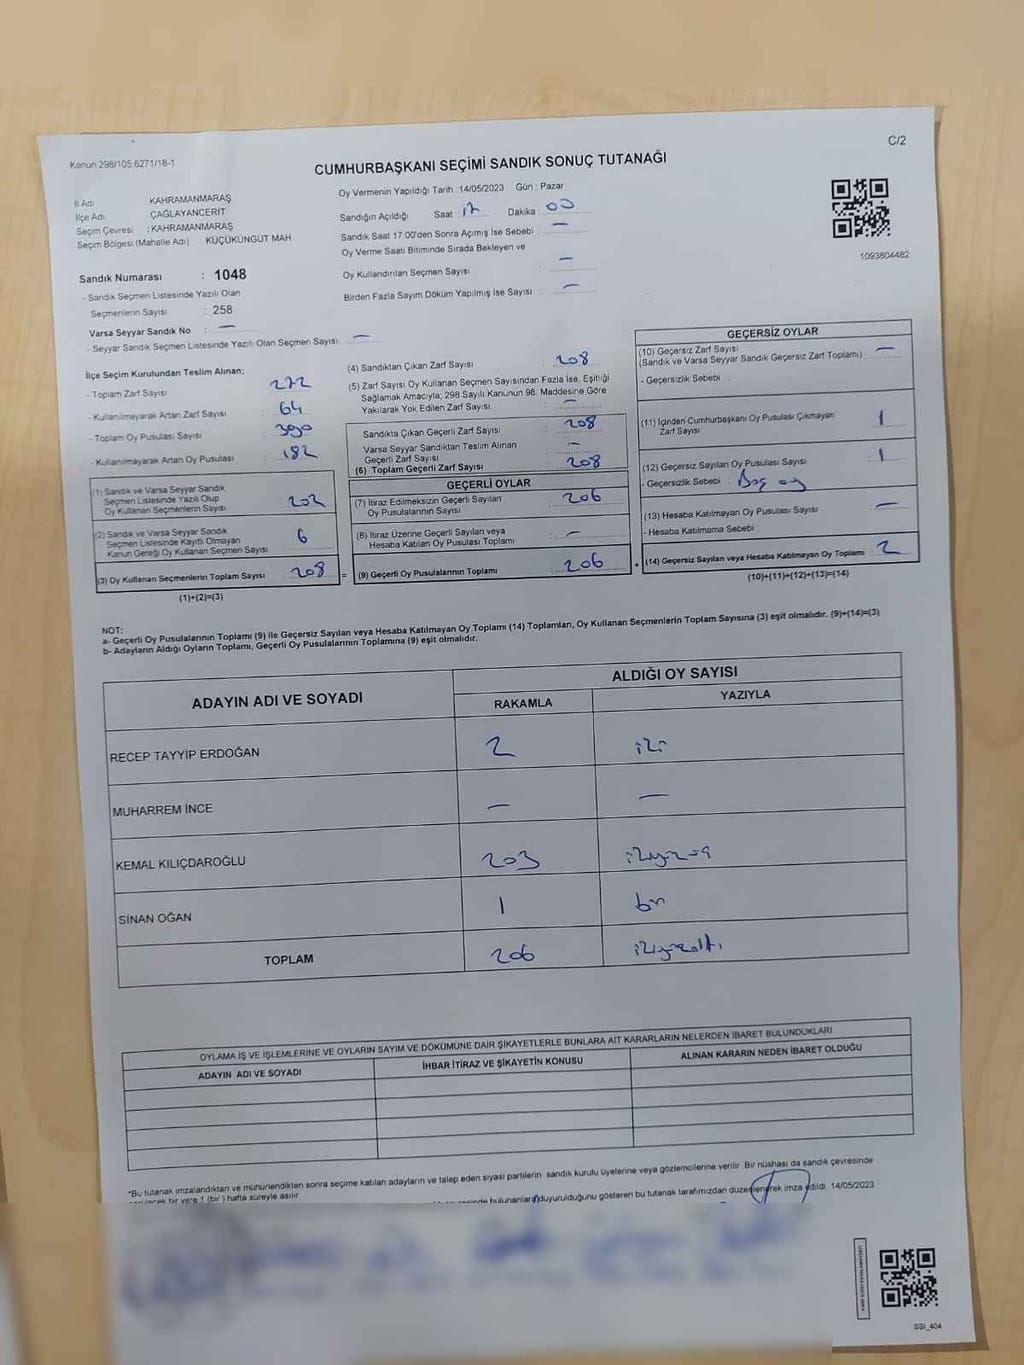 C/2
Kanun 298/105,6271/18-1
CUMHURBAŞKANI SEÇİMİ SANDIK SONUÇ TUTANAĞI
Oy Vermenin Yapıldığı Tarih : 14/05/2023 Gün : Pazar
İl Adı KAHRAMANMARAŞ
İlçe Adı ÇAĞLAYANCERİT
Seçim Çevresi : KAHRAMANMARAŞ
Seçim Bölgesi (Mahalle Adı) : KÜÇÜKÜNGÜT MAH
Sandığın Açıldığı Saat : 17 Dakika : 00
Sandık Saat 17:00'den Sonra Açımış İse Sebebi : —
Oy Verme Saati Bitiminde Sırada Bekleyen ve
Oy Kullandırılan Seçmen Sayısı : —
Birden Fazla Sayım Döküm Yapılmış İse Sayısı : —
1093804482
Sandık Numarası : 1048
- Sandık Seçmen Listesinde Yazılı Olan
Seçmenlerin Sayısı : 258
Varsa Seyyar Sandık No : —
- Seyyar Sandık Seçmen Listesinde Yazılı Olan Seçmen Sayısı: —
İlçe Seçim Kurulundan Teslim Alınan;
- Toplam Zarf Sayısı : 272
- Kullanılmayarak Artan Zarf Sayısı : 64
- Toplam Oy Pusulası Sayısı : 390
- Kullanılmayarak Artan Oy Pusulası : 182
(1) Sandık ve Varsa Seyyar Sandık
Seçmen Listesinde Yazılı Olup
Oy Kullanan Seçmenlerin Sayısı : 202
(2) Sandık ve Varsa Seyyar Sandık
Seçmen Listesinde Kayıtlı Olmayan
Kanun Gereği Oy Kullanan Seçmen Sayısı 6
(3) Oy Kullanan Seçmenlerin Toplam Sayısı 208
(1)+(2)=(3)
(4) Sandıktan Çıkan Zarf Sayısı : 208
(5) Zarf Sayısı Oy Kullanan Seçmen Sayısından Fazla İse, Eşitliği
Sağlamak Amacıyla; 298 Sayılı Kanunun 98. Maddesine Göre
Yakılarak Yok Edilen Zarf Sayısı : —
Sandıkta Çıkan Geçerli Zarf Sayısı : 208
Varsa Seyyar Sandıktan Teslim Alınan
Geçerli Zarf Sayısı : —
(6) Toplam Geçerli Zarf Sayısı 208
GEÇERLİ OYLAR
(7) İtiraz Edilmeksizin Geçerli Sayılan
Oy Pusulasının Sayısı : 206
(8) İtiraz Üzerine Geçerli Sayılan veya
Hesaba Katılan Oy Pusulası Toplamı : —
= (9) Geçerli Oy Pusulalarının Toplamı : 206
GEÇERSİZ OYLAR
(10) Geçersiz Zarf Sayısı
(Sandık ve Varsa Seyyar Sandık Geçersiz Zarf Toplamı) : —
- Geçersizlik Sebebi :
(11) İçinden Cumhurbaşkanı Oy Pusulası Çıkmayan
Zarf Sayısı : 1
(12) Geçersiz Sayılan Oy Pusulası Sayısı : 1
- Geçersizlik Sebebi : Boş oy
(13) Hesaba Katılmayan Oy Pusulası Sayısı : —
- Hesaba Katılmama Sebebi :
+ (14) Geçersiz Sayılan veya Hesaba Katılmayan Oy Toplamı : 2
(10)+(11)+(12)+(13)=(14)
NOT:
a- Geçerli Oy Pusulalarının Toplamı (9) ile Geçersiz Sayılan veya Hesaba Katılmayan Oy Toplamı (14) Toplamları, Oy Kullanan Seçmenlerin Toplam Sayısına (3) eşit olmalıdır. (9)+(14)=(3)
b- Adayların Aldığı Oyların Toplamı, Geçerli Oy Pusulalarının Toplamına (9) eşit olmalıdır.
ADAYIN ADI VE SOYADI ALDIĞI OY SAYISI
RAKAMLA YAZIYLA
RECEP TAYYİP ERDOĞAN 2 iki
MUHARREM İNCE — —
KEMAL KILIÇDAROĞLU 203
SİNAN OĞAN 1 bir
TOPLAM 206 ikiyüzaltı
OYLAMA İŞ VE İŞLEMLERİNE VE OYLARIN SAYIM VE DÖKÜMÜNE DAİR ŞİKAYETLERLE BUNLARA AİT KARARLARIN NELERDEN İBARET BULUNDUKLARI
ADAYIN ADI VE SOYADI İHBAR İTİRAZ VE ŞİKAYETİN KONUSU ALINAN KARARIN NEDEN İBARET OLDUĞU
*Bu tutanak imzalandıktan ve mühürlendikten sonra seçime katılan adayların ve talep eden siyasi partilerin sandık kurulu üyelerine veya gözlemcilerine verilir. Bir nüshası da sandık çevresinde
bir yere 1 (bir) hafta süreyle asılır.
bulunanlara duyurulduğunu gösteren bu tutanak tarafımızdan düzenlenerek imza edildi. 14/05/2023
SSI_404